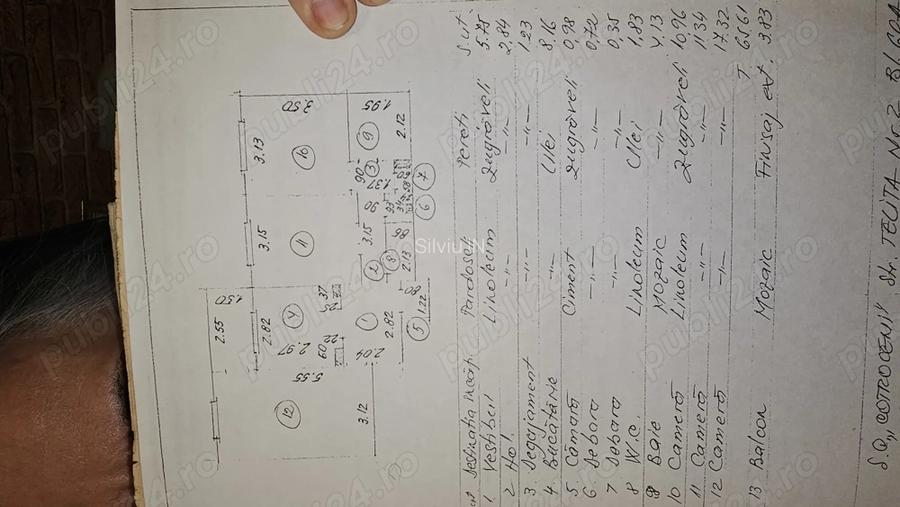 2.55
1.50
2.82
3.15
3.13
3.50
1.95
2.12
12
5.55
3.12
4
2.97
22
60
37
1
2.04
2.82
5
1.22
80
11
3.15
2
8
2.13
88
10
9
90
3
1.37
90
6
7
Silviu.IN
publi24.ro
Destinatia incăp. Pardoseli Pereti S.ut
1 Vestibul Linoleum Zugrăveli 5.75
2 Hol -"- -"- 2,84
3. Degajament -"- -"- 1.23
4. Bucătărie -"- Ulei 8,16
5. Cămară Ciment Zugrăveli 0,98
6. Debara -"- -"- 0,72
7 Debara -"- -"- 0,35
8 W.C. Linoleum Ulei 1,83
9 Baie Mozaic -"- 4,13
10 Cameră Linoleum Zugrăveli 10,96
11 Cameră -"- -"- 11,34
12 Cameră -"- -"- 17.32
T 65,61
13 Balcon Mozaic Finisaj ext. 3.83
S.Q. "COTROCENI" Str. TELITA Nr 2 Bl 60A